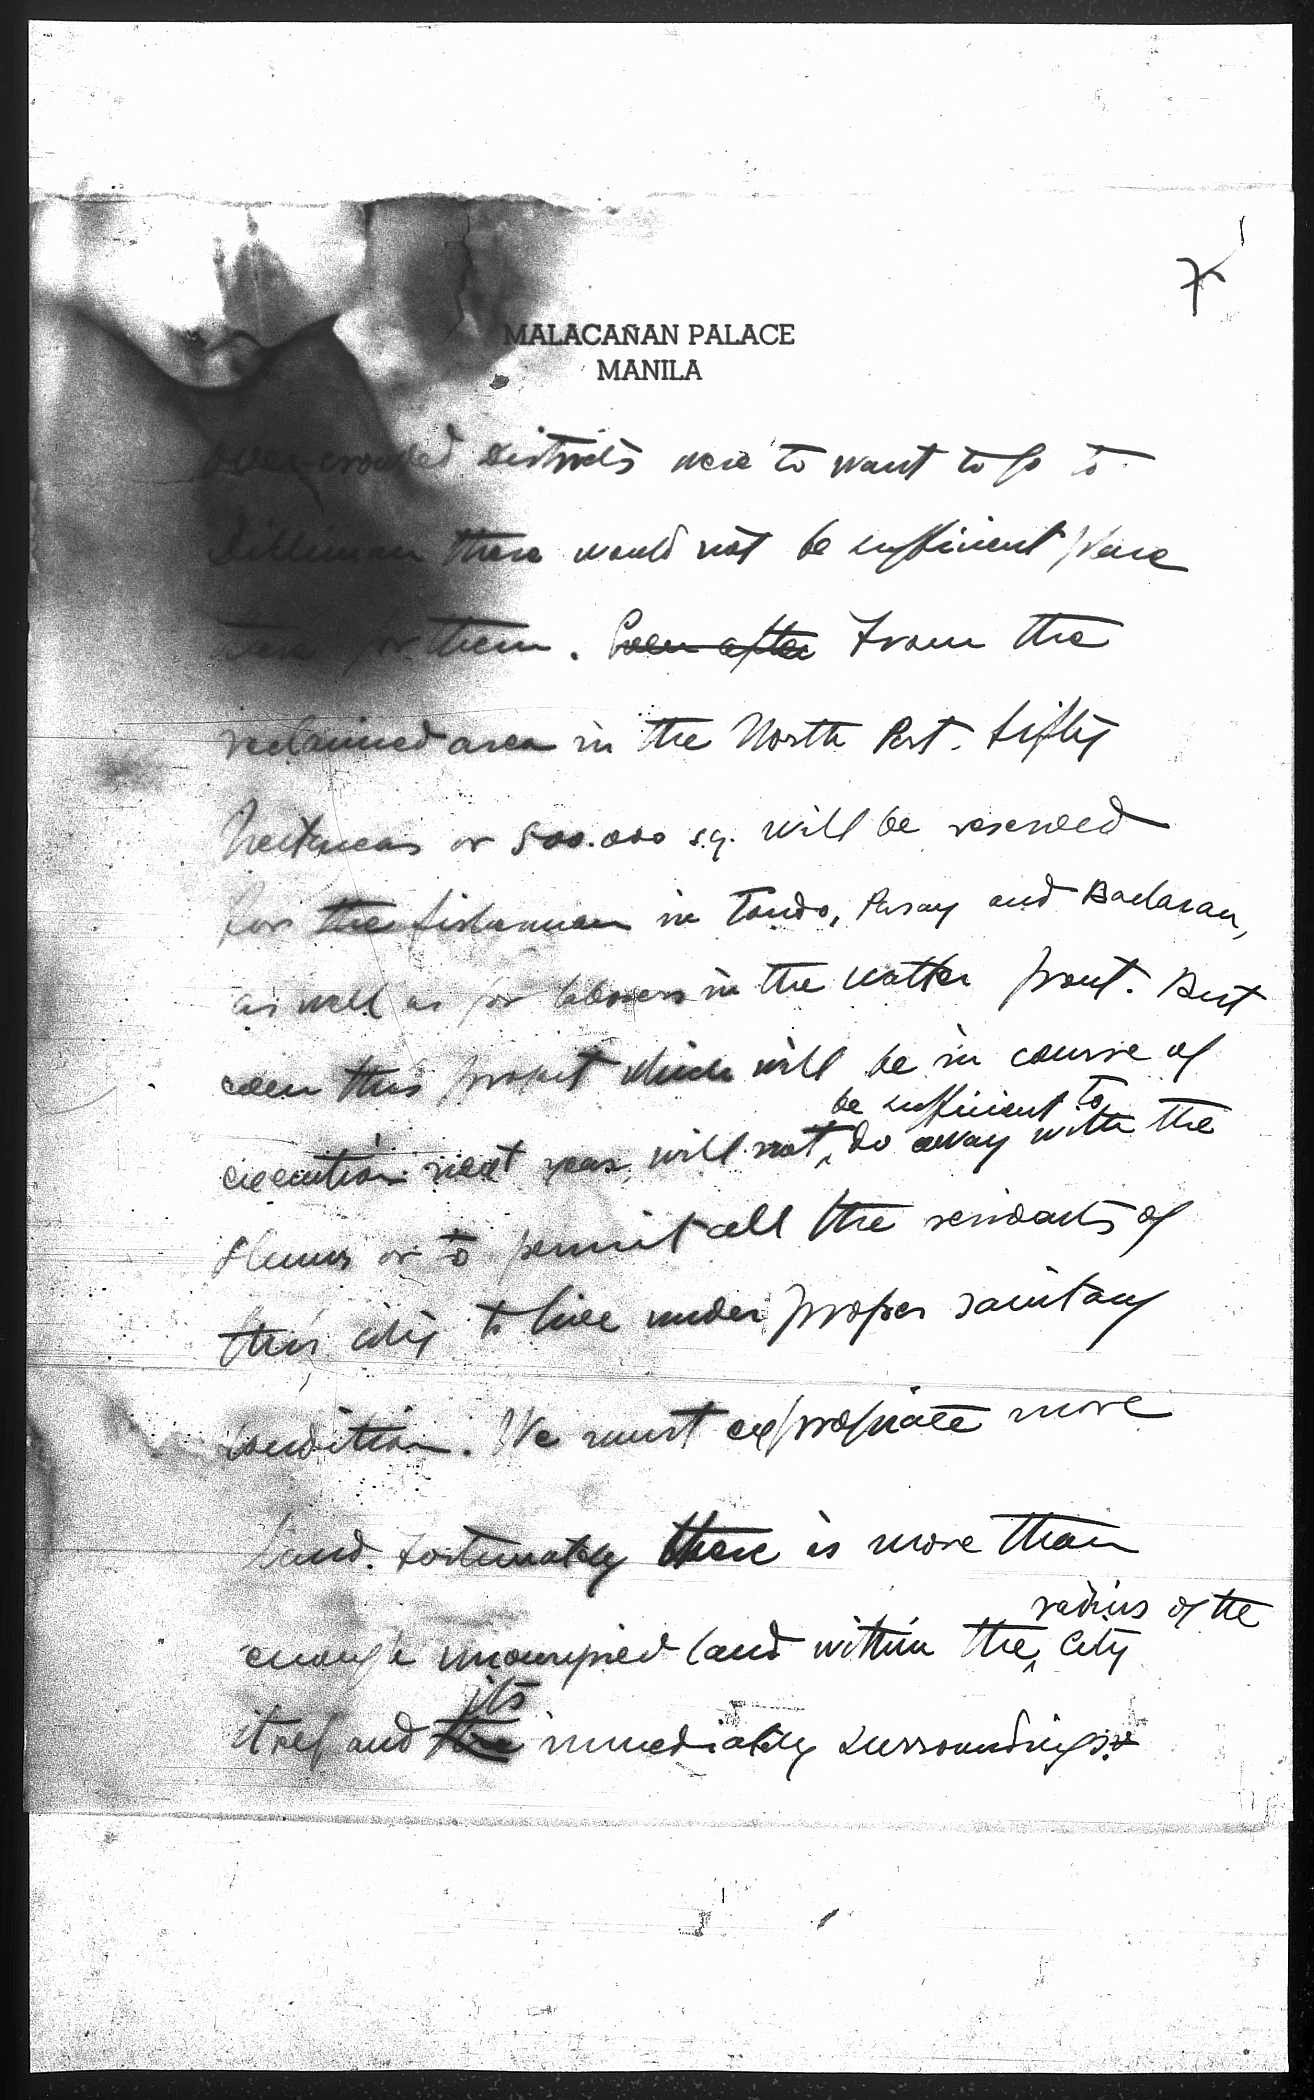 7
MALACAÑAN PALACE
MANILA
over-crowded districts were to want to go to
Dilliman there would not be sufficient place
there for them. Even after From the
reclaimed area in the North Port. fifty
hectareas or 500.000 s.q. will be reserved
for the fisherman in Tondo, Pasay and Baclaran,
as well as for laborers in the watter front. But
even this project which will be in course of
be sufficient to
execution next year, will not do away with the
slums or to permit all the residents of
this city to live under proper sanitary
condition. We must expropriate more
land. Fortunately there is more than
radius of the
enough unoccupied land within the City
its
itself and the immediately surroundings.